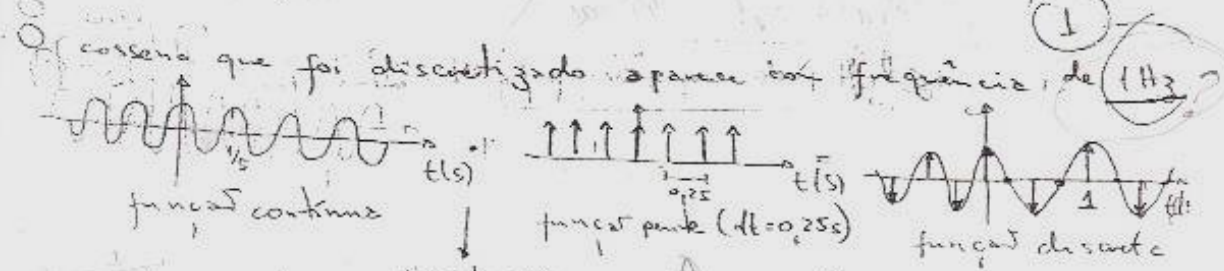 1
O cosseno que foi discretizado aparece com frequência de 1Hz ?
1/5
t(s)
função contínua
0,25
t(s)
função pente (dt=0,25s)
1
função discreta